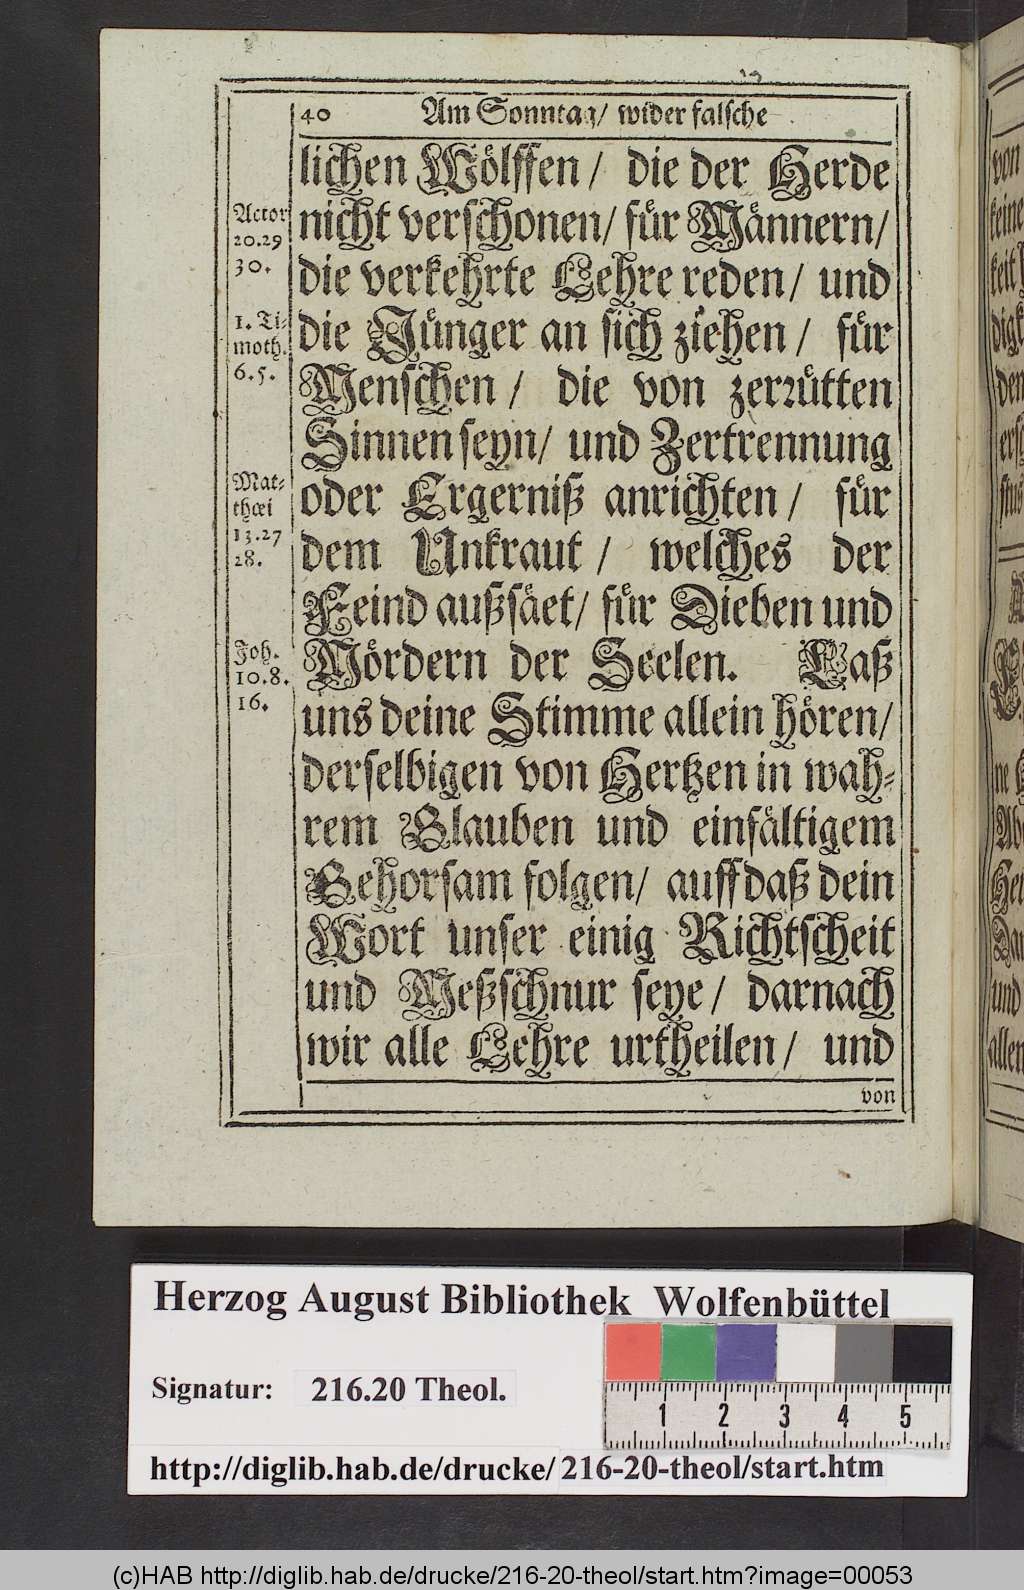 40 Am Sonntag/ wider falsche
lichen Wölffen/ die der Herde
nicht verschonen/ für Männern/
die verkehrte Lehre reden/ und
die Jünger an sich ziehen/ für
Menschen/ die von zerrütten
Sinnen seyn/ und Zertrennung
oder Ergerniß anrichten/ für
dem Unkraut/ welches der
Feind außsäet/ für Dieben und
Mördern der Seelen. Laß
uns deine Stimme allein hören/
derselbigen von Hertzen in wah-
rem Glauben und einfältigem
Gehorsam folgen/ auff daß dein
Wort unser einig Richtscheit
und Meßschnur seye/ darnach
wir alle Lehre urtheilen/ und
von
Actor
20.29
30.
1. Ti-
moth.
6.5.
Mat-
thæi
13.27
28.
Joh.
10.8.
16.
von
keine
keit
digk
den
ersc
stus
ne
Abe
Hei
Dar
und
allen
Herzog August Bibliothek Wolfenbüttel
Signatur: 216.20 Theol.
1 2 3 4 5
http://diglib.hab.de/drucke/216-20-theol/start.htm
(c)HAB http://diglib.hab.de/drucke/216-20-theol/start.htm?image=00053